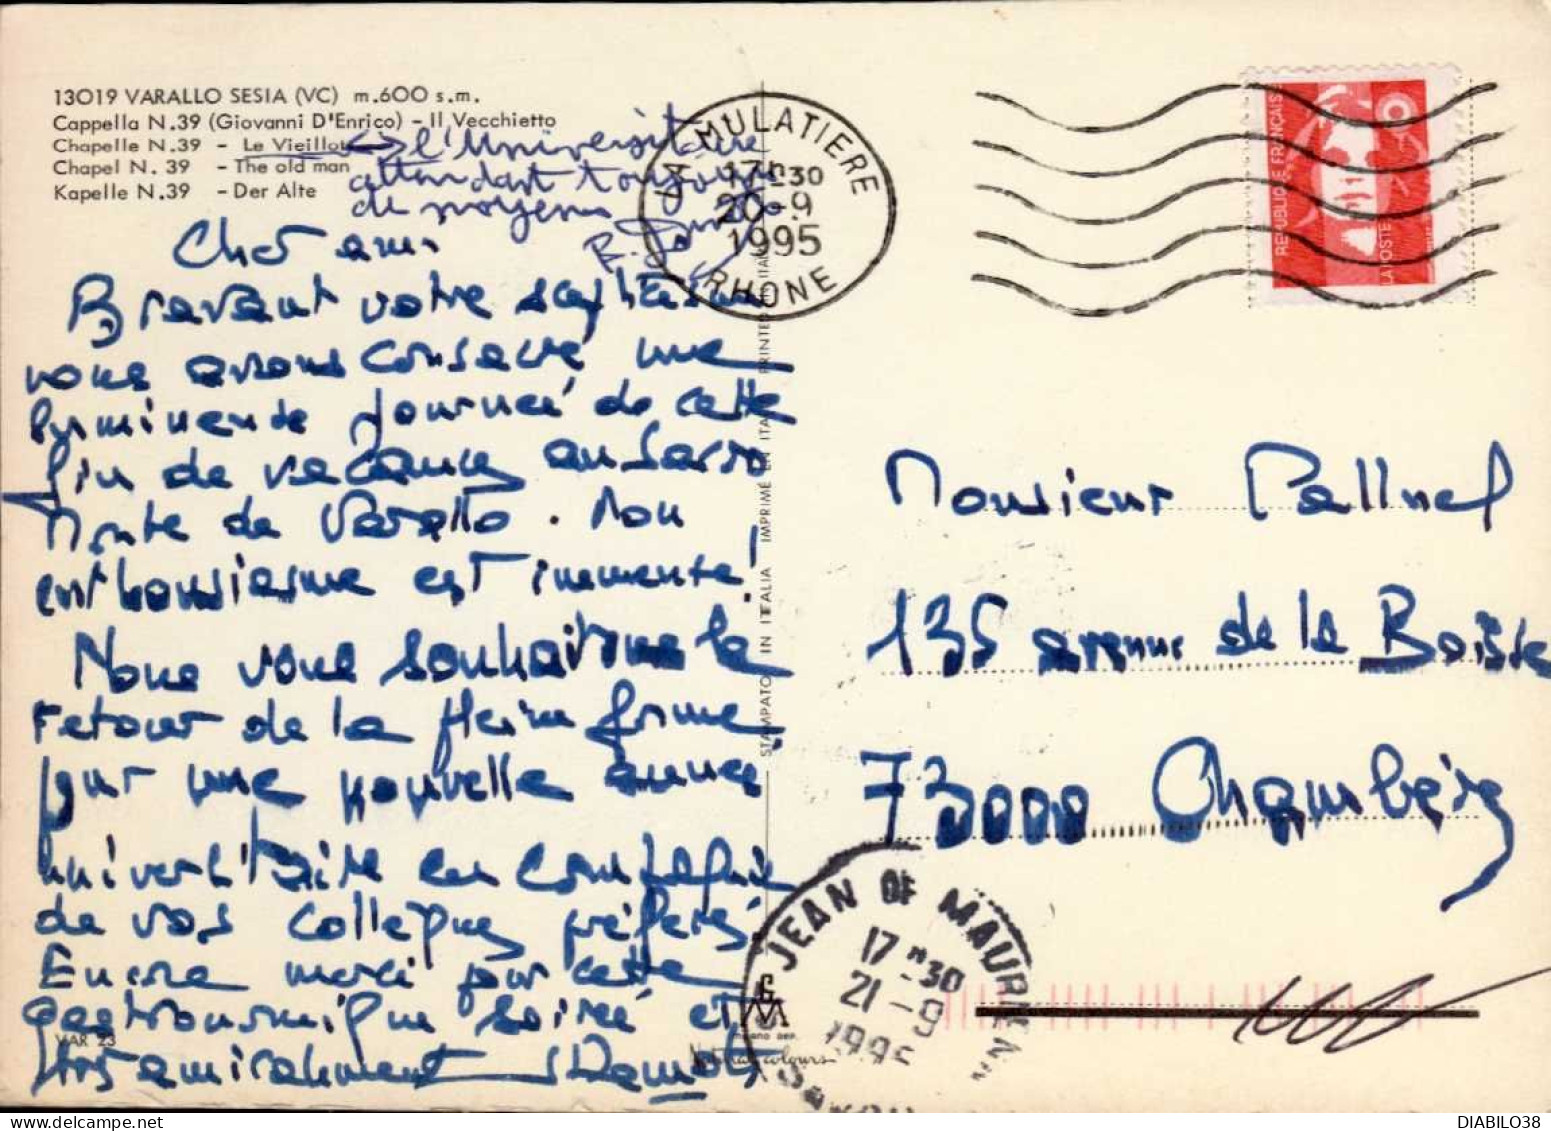 13019 VARALLO SESIA (VC) m.600 s.m.
Cappella N.39 (Giovanni D'Enrico) - Il Vecchietto
Chapelle N.39 - Le Vieillot
Chapel N. 39 - The old man
Kapelle N.39 - Der Alte
l'Universitaire
attendant toujours
de moyens
Cher ami
Bravant votre
nous avons consacré une
journée de cette
fin de vacances au Sacro
Monte de Varallo. Mon
enthousiasme est immense!
Nous vous souhaitons le
retour de la pleine forme
pour une nouvelle année
universitaire en compagnie
de vos collègues préférés
Encore merci pour cette
gastronomique soirée et
très amicalement
VAR 23
STAMPATO IN ITALIA IMPRIMÉ EN ITALIE PRINTED
Natural colours
LA MULATIERE
17H30
20-9
1995
RHONE
REPUBLIQUE FRANÇAISE
LA POSTE
Monsieur Pallnel
135 avenue de la Boisse
73000 Chambéry
JEAN DE MAURIENNE
17H30
21-9
1995
SAVOIE
DIABILO38